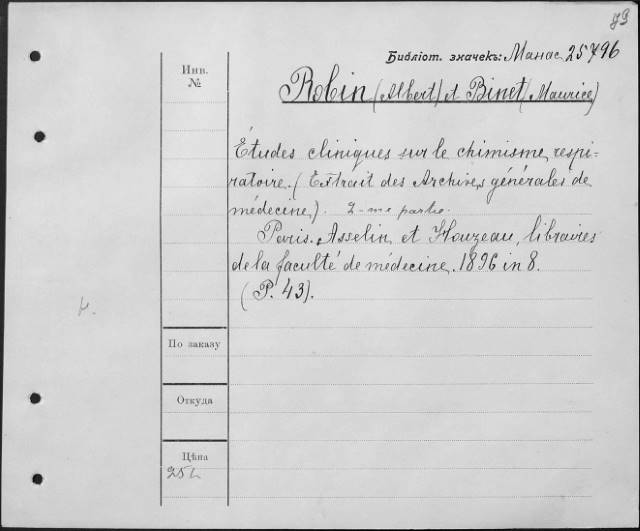 79
Библіот. значекъ: Манас 25796
Инв.
№
Robin (Albert) et Binet (Maurice)
Études cliniques sur le chimisme respi-
ratoire. (Extrait des Archives générales de
médecine). 2-me partie.
Paris. Asselin et Houzeau, libraires
de la faculté de médecine. 1896 in 8.
(P. 43).
По заказу
Откуда
Цѣна